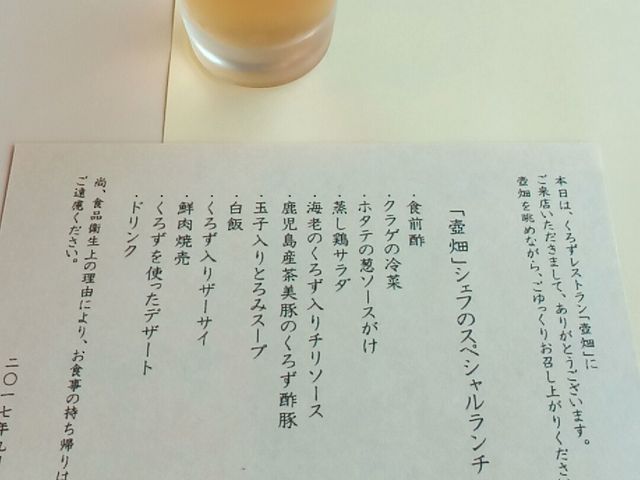 本日は、くろずレストラン「壺畑」に
ご来店いただきまして、ありがとうございます。
壺畑を眺めながら、ごゆっくりお召し上がりくださ
「壺畑」シェフのスペシャルランチ
・食前酢
・クラゲの冷菜
・ホタテの葱ソースがけ
・蒸し鶏サラダ
・海老のくろず入りチリソース
・鹿児島産茶美豚のくろず酢豚
・玉子入りとろみスープ
・白飯
・くろず入りザーサイ
・鮮肉焼売
・くろずを使ったデザート
・ドリンク
尚、食品衛生上の理由により、お食事の持ち帰りは
ご遠慮ください。
二〇一七年九月